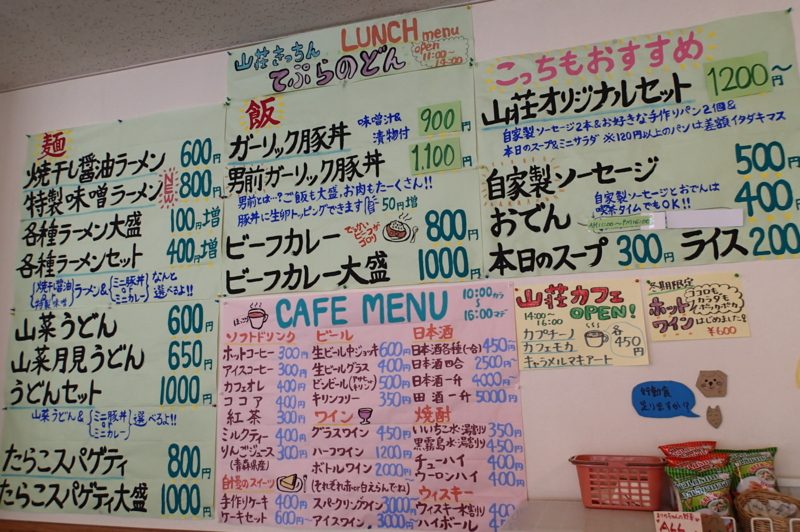 山荘きっちん
てぷらのどん
LUNCH menu
open
11:00～
14:00
麺
焼干し醤油ラーメン 600円
特製味噌ラーメン 800円
NEW
各種ラーメン大盛 100円増
各種ラーメンセット 400円増
ラーメン&{ミニ豚丼 or ミニカレー}なんと選べるよ!!
山菜うどん 600円
山菜月見うどん 650円
うどんセット 1000円
山菜うどん&{ミニ豚丼 or ミニカレー}選べるよ!!
たらこスパゲティ 800円
たらこスパゲティ大盛 1000円
飯
味噌汁&漬物付
ガーリック豚丼 900円
男前ガーリック豚丼 1,100円
男前とは…?ご飯も大盛、お肉もたーくさん!!
豚丼に生卵トッピングできます 50円増
ビーフカレー 800円
ビーフカレー大盛 1000円
こっちもおすすめ
山荘オリジナルセット 1200円～
自家製ソーセージ2本&お好きな手作りパン2個&
本日のスープ&ミニサラダ ※120円以上のパンは差額イタダキマス
自家製ソーセージ 500円
おでん 400円
自家製ソーセージとおでんは
喫茶タイムでもOK!!
本日のスープ 300円 ライス 200円
CAFE MENU
10:00から
16:00まで
ソフトドリンク
ホットコーヒー 300円
アイスコーヒー 300円
カフェオレ 400円
ココア 400円
紅茶 300円
ミルクティー 400円
りんごジュース 300円
(青森県産)
自慢のスイーツ
手作りケーキ 400円
ケーキセット 600円
ビール
生ビール中ジョッキ 600円
生ビールグラス 400円
ビンビール 500円
キリンフリー 350円
ワイン
グラスワイン 450円
ハーフワイン 1200円
ボトルワイン 2000円
(それぞれ赤or白えらんでね)
スパークリングワイン 3000円
アイスワイン 3000円
日本酒
日本酒各種(一合) 450円
日本酒四合 2500円～
日本酒一升 4000円～
田酒一升 5000円
焼酎
いいちこ水・湯割り 350円
黒霧島水・湯割り 450円
チューハイ 400円
ウーロンハイ 400円
ウィスキー
ウィスキー水割り 400円
ハイボール
山荘カフェ
OPEN!
14:00～
16:00
カプチーノ
カフェモカ
キャラメルマキアート
各450円
冬期限定
ホットワイン
ココロも
カラダも
ポッカポカ
はじめました
¥600
ALL